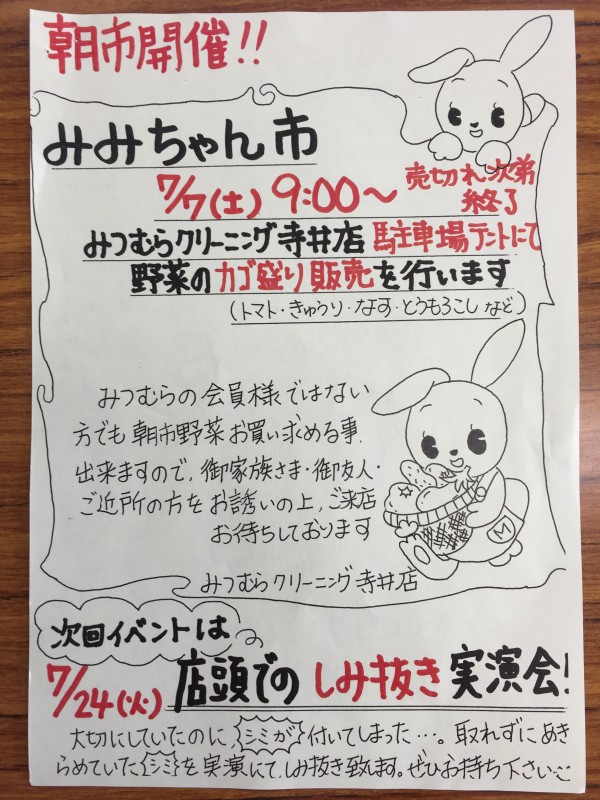 朝市開催!!
みみちゃん市
7/7(土) 9:00〜 売切れ次弟
終了
みつむらクリーニング寺井店 駐車場テントにて
野菜のカゴ盛り販売を行います
(トマト・きゅうり・なす・とうもろこし など)
みつむらの会員様ではない
方でも朝市野菜お買い求める事
出来ますので、御家族さま・御友人・
ご近所の方をお誘いの上、ご来店
お待ちしております
みつむらクリーニング寺井店
M
次回イベントは
7/24(火) 店頭での しみ抜き 実演会!
大切にしていたのに、シミが付いてしまった…。取れずにあき
らめていたシミを実演にて、しみ抜き致します。ぜひお持ち下さい